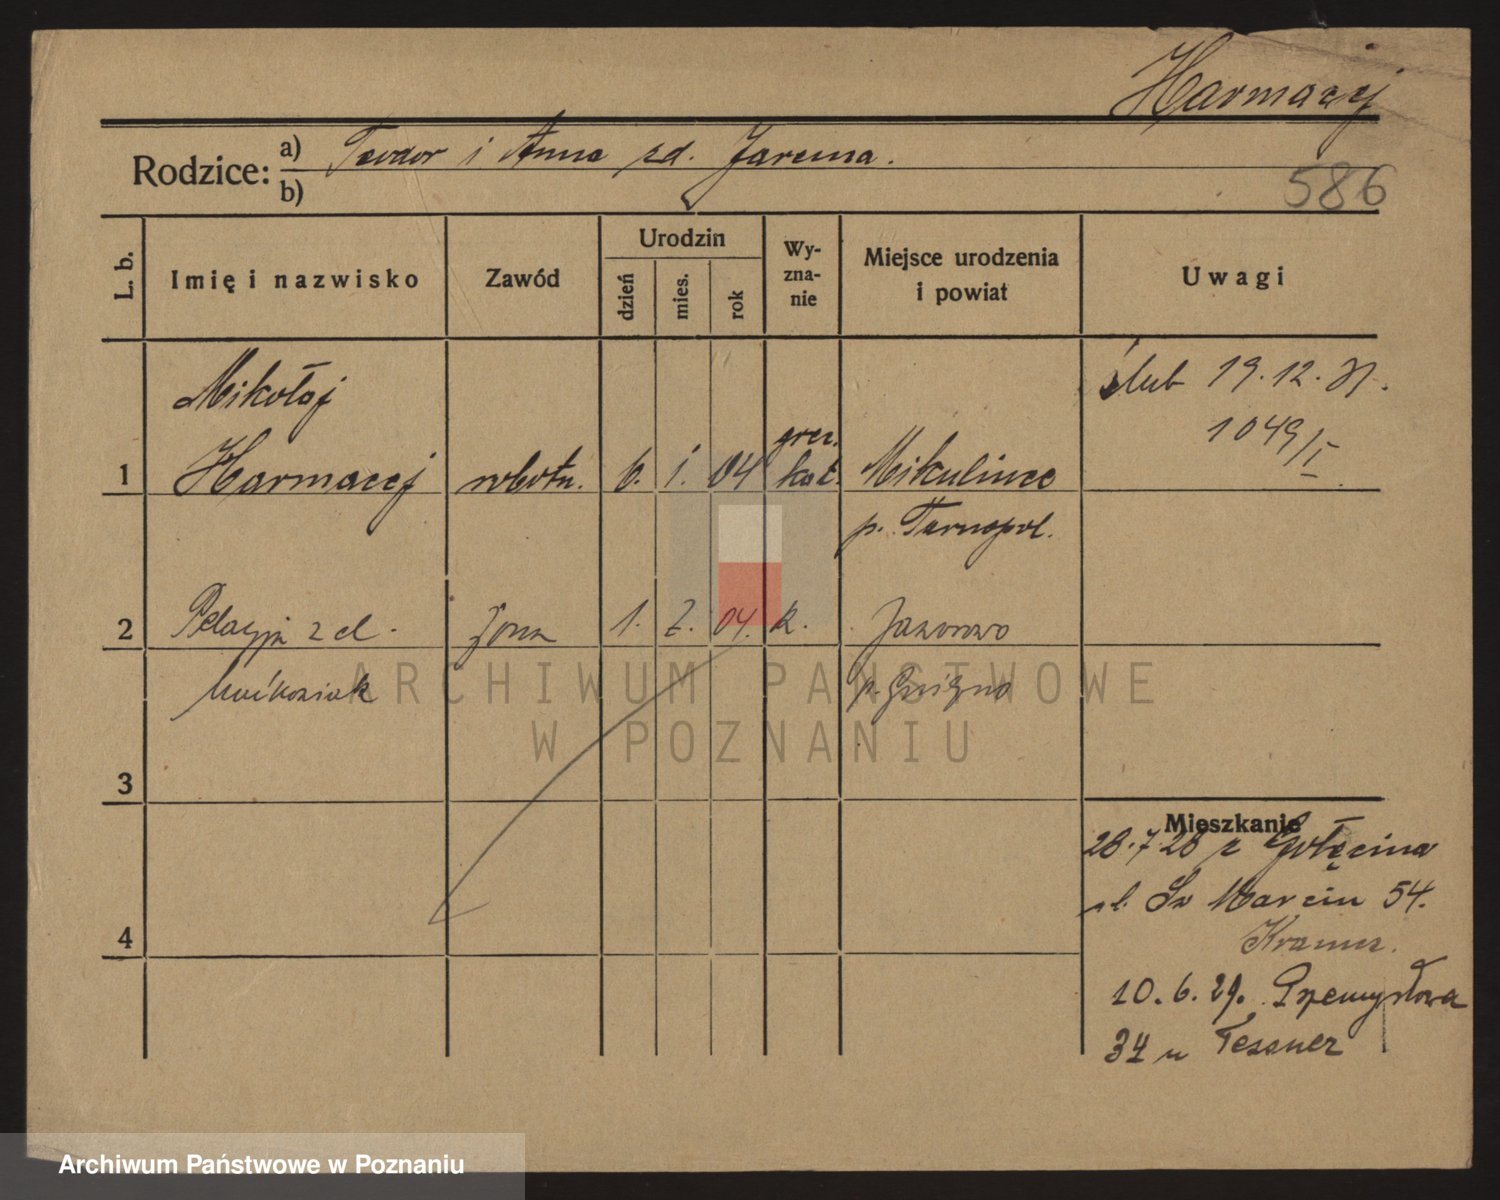 Harmacej
Rodzice: a) Teodor i Anna zd. Jarema.
b)
586
L. b. Imię i nazwisko Zawód Urodzin dzień mies. rok Wy-zna-nie Miejsce urodzenia i powiat Uwagi
Mikołaj
ślub 19.12.31.
1049/I
grec.
1 Harmacej robotn. 6. 1. 04 kat. Mikulince
p. Tarnopol.
2 Pelagja zd. żona 1. 2. 04. k. Jaworowo
p. Gniezno
3
Mieszkanie
28.7.28 z Gołęcina
ul. Św Marcin 54.
4
Kramer.
10.6.29. Przemysłowa
34 u Tessner
ARCHIWUM PAŃSTWOWE
W POZNANIU
Archiwum Państwowe w Poznaniu